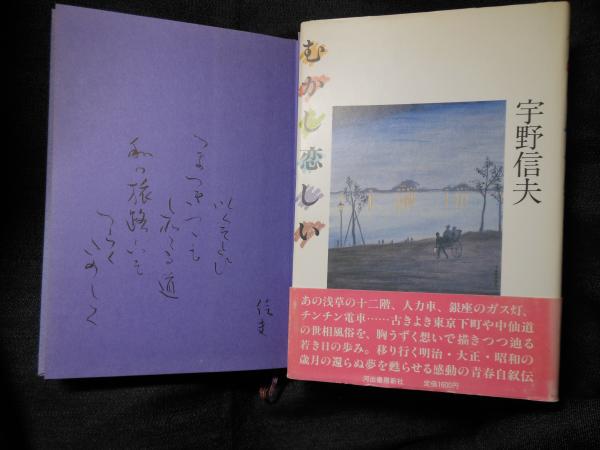 私の旅路
信夫
むかし恋しい
宇野信夫
あの浅草の十二階、人力車、銀座のガス灯、
チンチン電車……古きよき東京下町や中仙道
の世相風俗を、胸うずく想いで描きつつ辿る
若き日の歩み。移り行く明治・大正・昭和の
歳月の還らぬ夢を甦らせる感動の青春自叙伝
河出書房新社
定価1600円